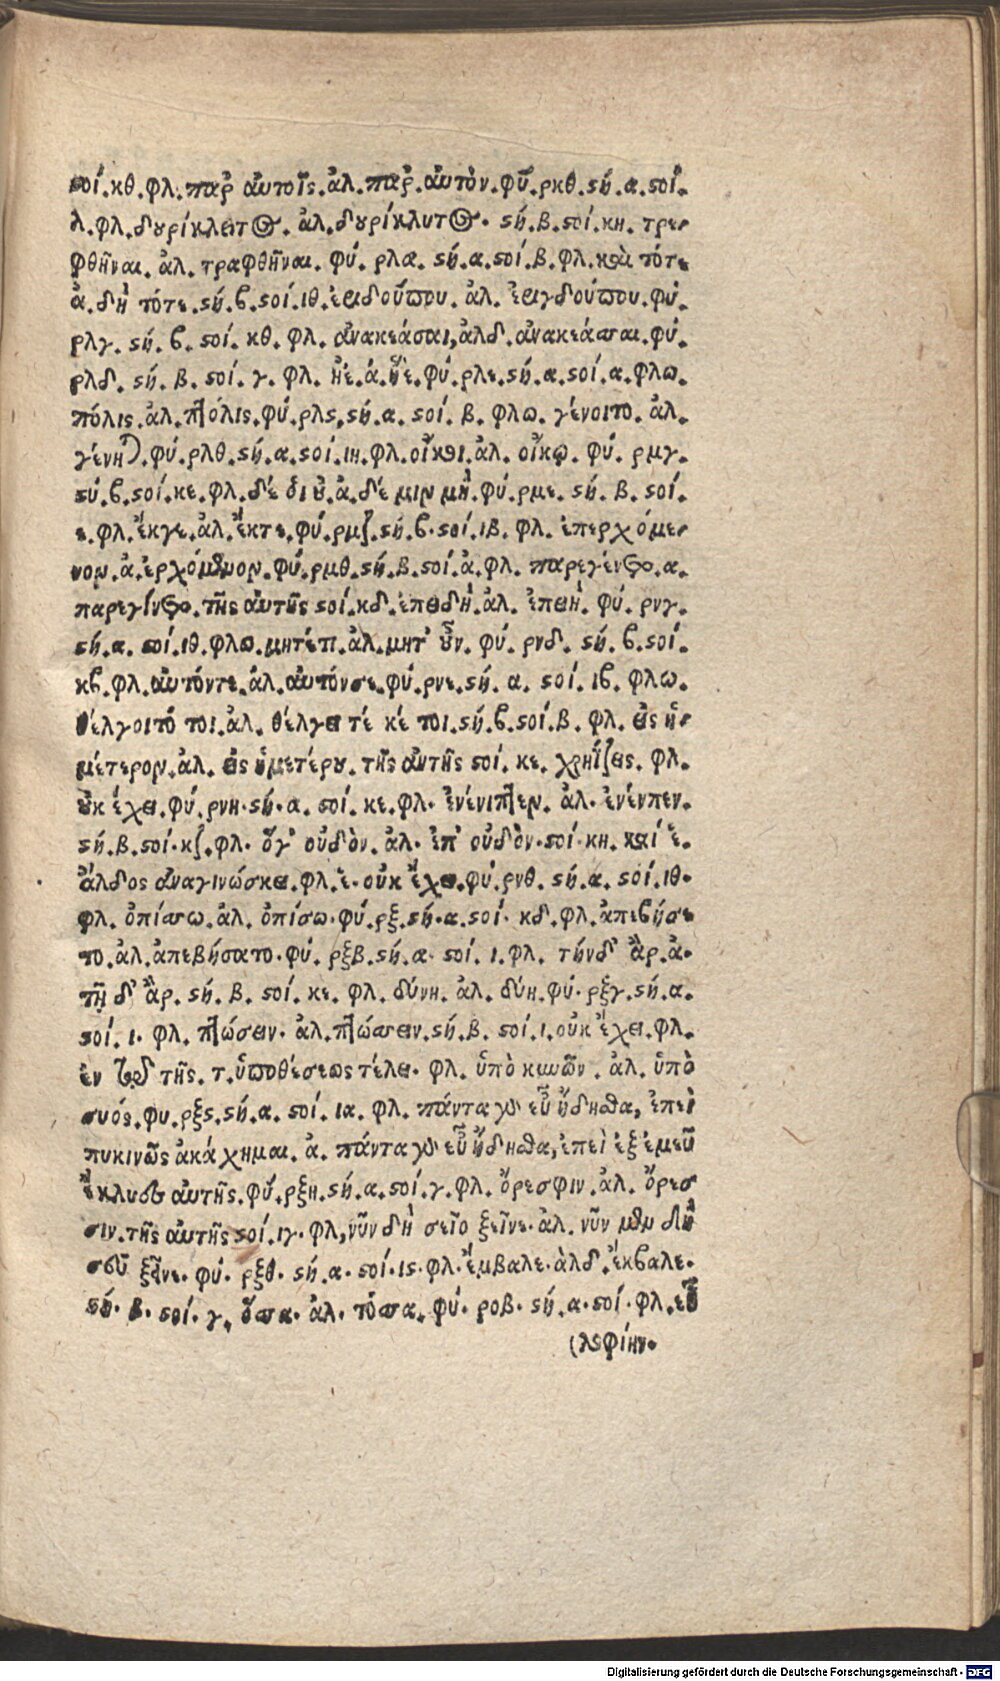 σοί. κθ. φλ. παρ' αὐτοῖς. ἀλ. παρ' αὐτὸν. φύ. ρκθ. σή. α. σοί.
λ. φλ. δουρίκλειτος. ἀλ. δουρίκλυτος. σή. β. σοί. κη. τρε-
φθῆναι. ἀλ. τραφθῆναι. φύ. ρλα. σή. α. σοί. β. φλ. καὶ τότε
ἀ. δὴ τότε. σή. β. σοί. ιθ. ἐειδούπου. ἀλ. ἐειγδούπου. φύ.
ρλγ. σή. β. σοί. κθ. φλ. ἀνακεάσαι, ἀλδ. ἀνακεάσσαι. φύ.
ρλδ. σή. β. σοί. γ. φλ. ἠέ. ἀ. ἦε. φύ. ρλε. σή. α. σοί. α. φλω.
πόλις. ἀλ. πτόλις. φύ. ρλς. σή. α. σοί. β. φλω. γένοιτο. ἀλ.
γένηται. φύ. ρλθ. σή. α. σοί. ιη. φλ. οἴκοι. ἀλ. οἴκῳ. φύ. ρμγ.
σύ. β. σοί. κε. φλ. δέ οἱ οὐ. ἀ. δέ μιν μὴ. φύ. ρμε. σή. β. σοί.
ε. φλ. ἔκγε. ἀλ. ἔκτε. φύ. ρμζ. σή. β. σοί. ιβ. φλ. ἐπερχόμε-
νον. ἀ. ἐρχόμενον. φύ. ρμθ. σή. β. σοί. ἀ. φλ. παρεγένοντο. α.
παρεγίνοντο. τῆς αὐτῆς σοί. κδ. ἐπειδὴ. ἀλ. ἐπειὴ. φύ. ρνγ.
σή. α. σοί. ιθ. φλω. μητέτι. ἀλ. μητ' οὖν. φύ. ρνδ. σή. β. σοί.
κβ. φλ. αὐτόντε. ἀλ. αὐτόνσε. φύ. ρνε. σή. α. σοί. ιβ. φλω.
θέλγοιτό τοι. ἀλ. θέλγει τέ κέ τοι. σή. β. σοί. β. φλ. εἰς ἡ-
μέτερον. ἀλ. εἰς ἡμετέρου. τῆς αὐτῆς σοί. κε. χρηΐζεις. φλ.
οὐκ ἔχει. φύ. ρνη. σή. α. σοί. κε. φλ. ἐνένιπτεν. ἀλ. ἐνένιπεν.
σή. β. σοί. κζ. φλ. ὅγ' οὐδὸν. ἀλ. ἐπ' οὐδὸν. σοί. κη. καί ἑ.
ἄλδος ἀναγινώσκει. φλ. ἑ. οὐκ ἔχει. φύ. ρνθ. σή. α. σοί. ιθ.
φλ. ὀπίσσω. ἀλ. ὀπίσω. φύ. ρξ. σή. α. σοί. κδ. φλ. ἀπεβήσε
το. ἀλ. ἀπεβήσατο. φύ. ρξβ. σή. α. σοί. ι. φλ. τήνδ' ἂρ. ἀ.
τῇ δ' ἂρ. σή. β. σοί. κε. φλ. δύνη. ἀλ. δύη. φύ. ρξγ. σή. α.
σοί. ι. φλ. πτώσειν. ἀλ. πτώσσειν. σή. β. σοί. ι. οὐκ ἔχει. φλ.
ἐν τῷ τῆς. τ. ὑποθέσεως τέλει. φλ. ὑπὸ κυνῶν. ἀλ. ὑπὸ
συός. φυ. ρξς. σή. α. σοί. ια. φλ. πάντα γὰρ εὖ ᾔδησθα, ἐπεὶ
πυκινῶς ἀκάχημαι. ἀ. πάντα γὰρ εὖ ᾔδησθα, ἐπεὶ ἐξ ἐμεῦ
ἔκλυες αὐτῆς. φύ. ρξη. σή. α. σοί. γ. φλ. ὄρεσφιν. ἀλ. ὄρεσ
σιν. τῆς αὐτῆς σοί. ιγ. φλ, νῦν δὴ σεῖο ξεῖνε. ἀλ. νῦν μὲν δὴ
σεῦ ξεῖνε. φύ. ρξθ. σή. α. σοί. ις. φλ. ἔμβαλε. ἀλδ. ἔκβαλε.
σή. β. σοί. γ. ὅσσα. ἀλ. τόσσα. φύ. ροβ. σή. α. σοί. φλ. εὖ
(λοφίην.
Digitalisierung gefördert durch die Deutsche Forschungsgemeinschaft - DFG